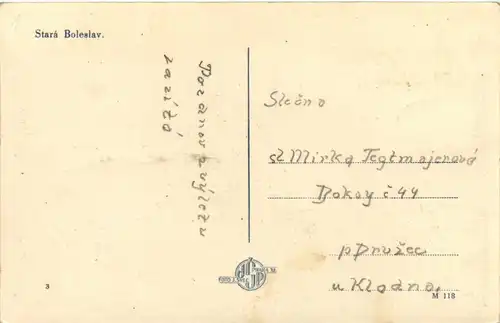 Stará Boleslav.
Pozdrav z výletu
zasílá
Slečno
Mirka Tegtmajerová
Doksy č 44
p Družec
u Kladna,
3
M 118